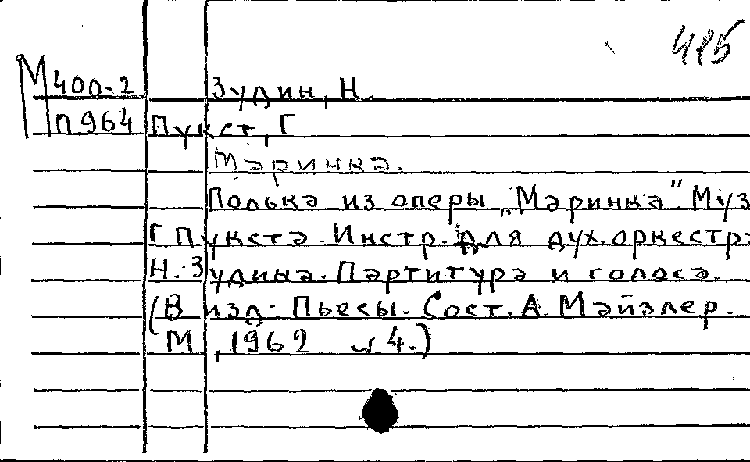 415
М 400-2 Зудин, Н.
П964 Пукст, Г
Маринка.
Полька из оперы „Маринка" Муз
Г Пукста. Инстр. для дух. оркестра
Н. Зудина. Партитура и голоса.
(В изд: Пьесы. Сост. А. Майзлер.
М, 1962 № 4.)